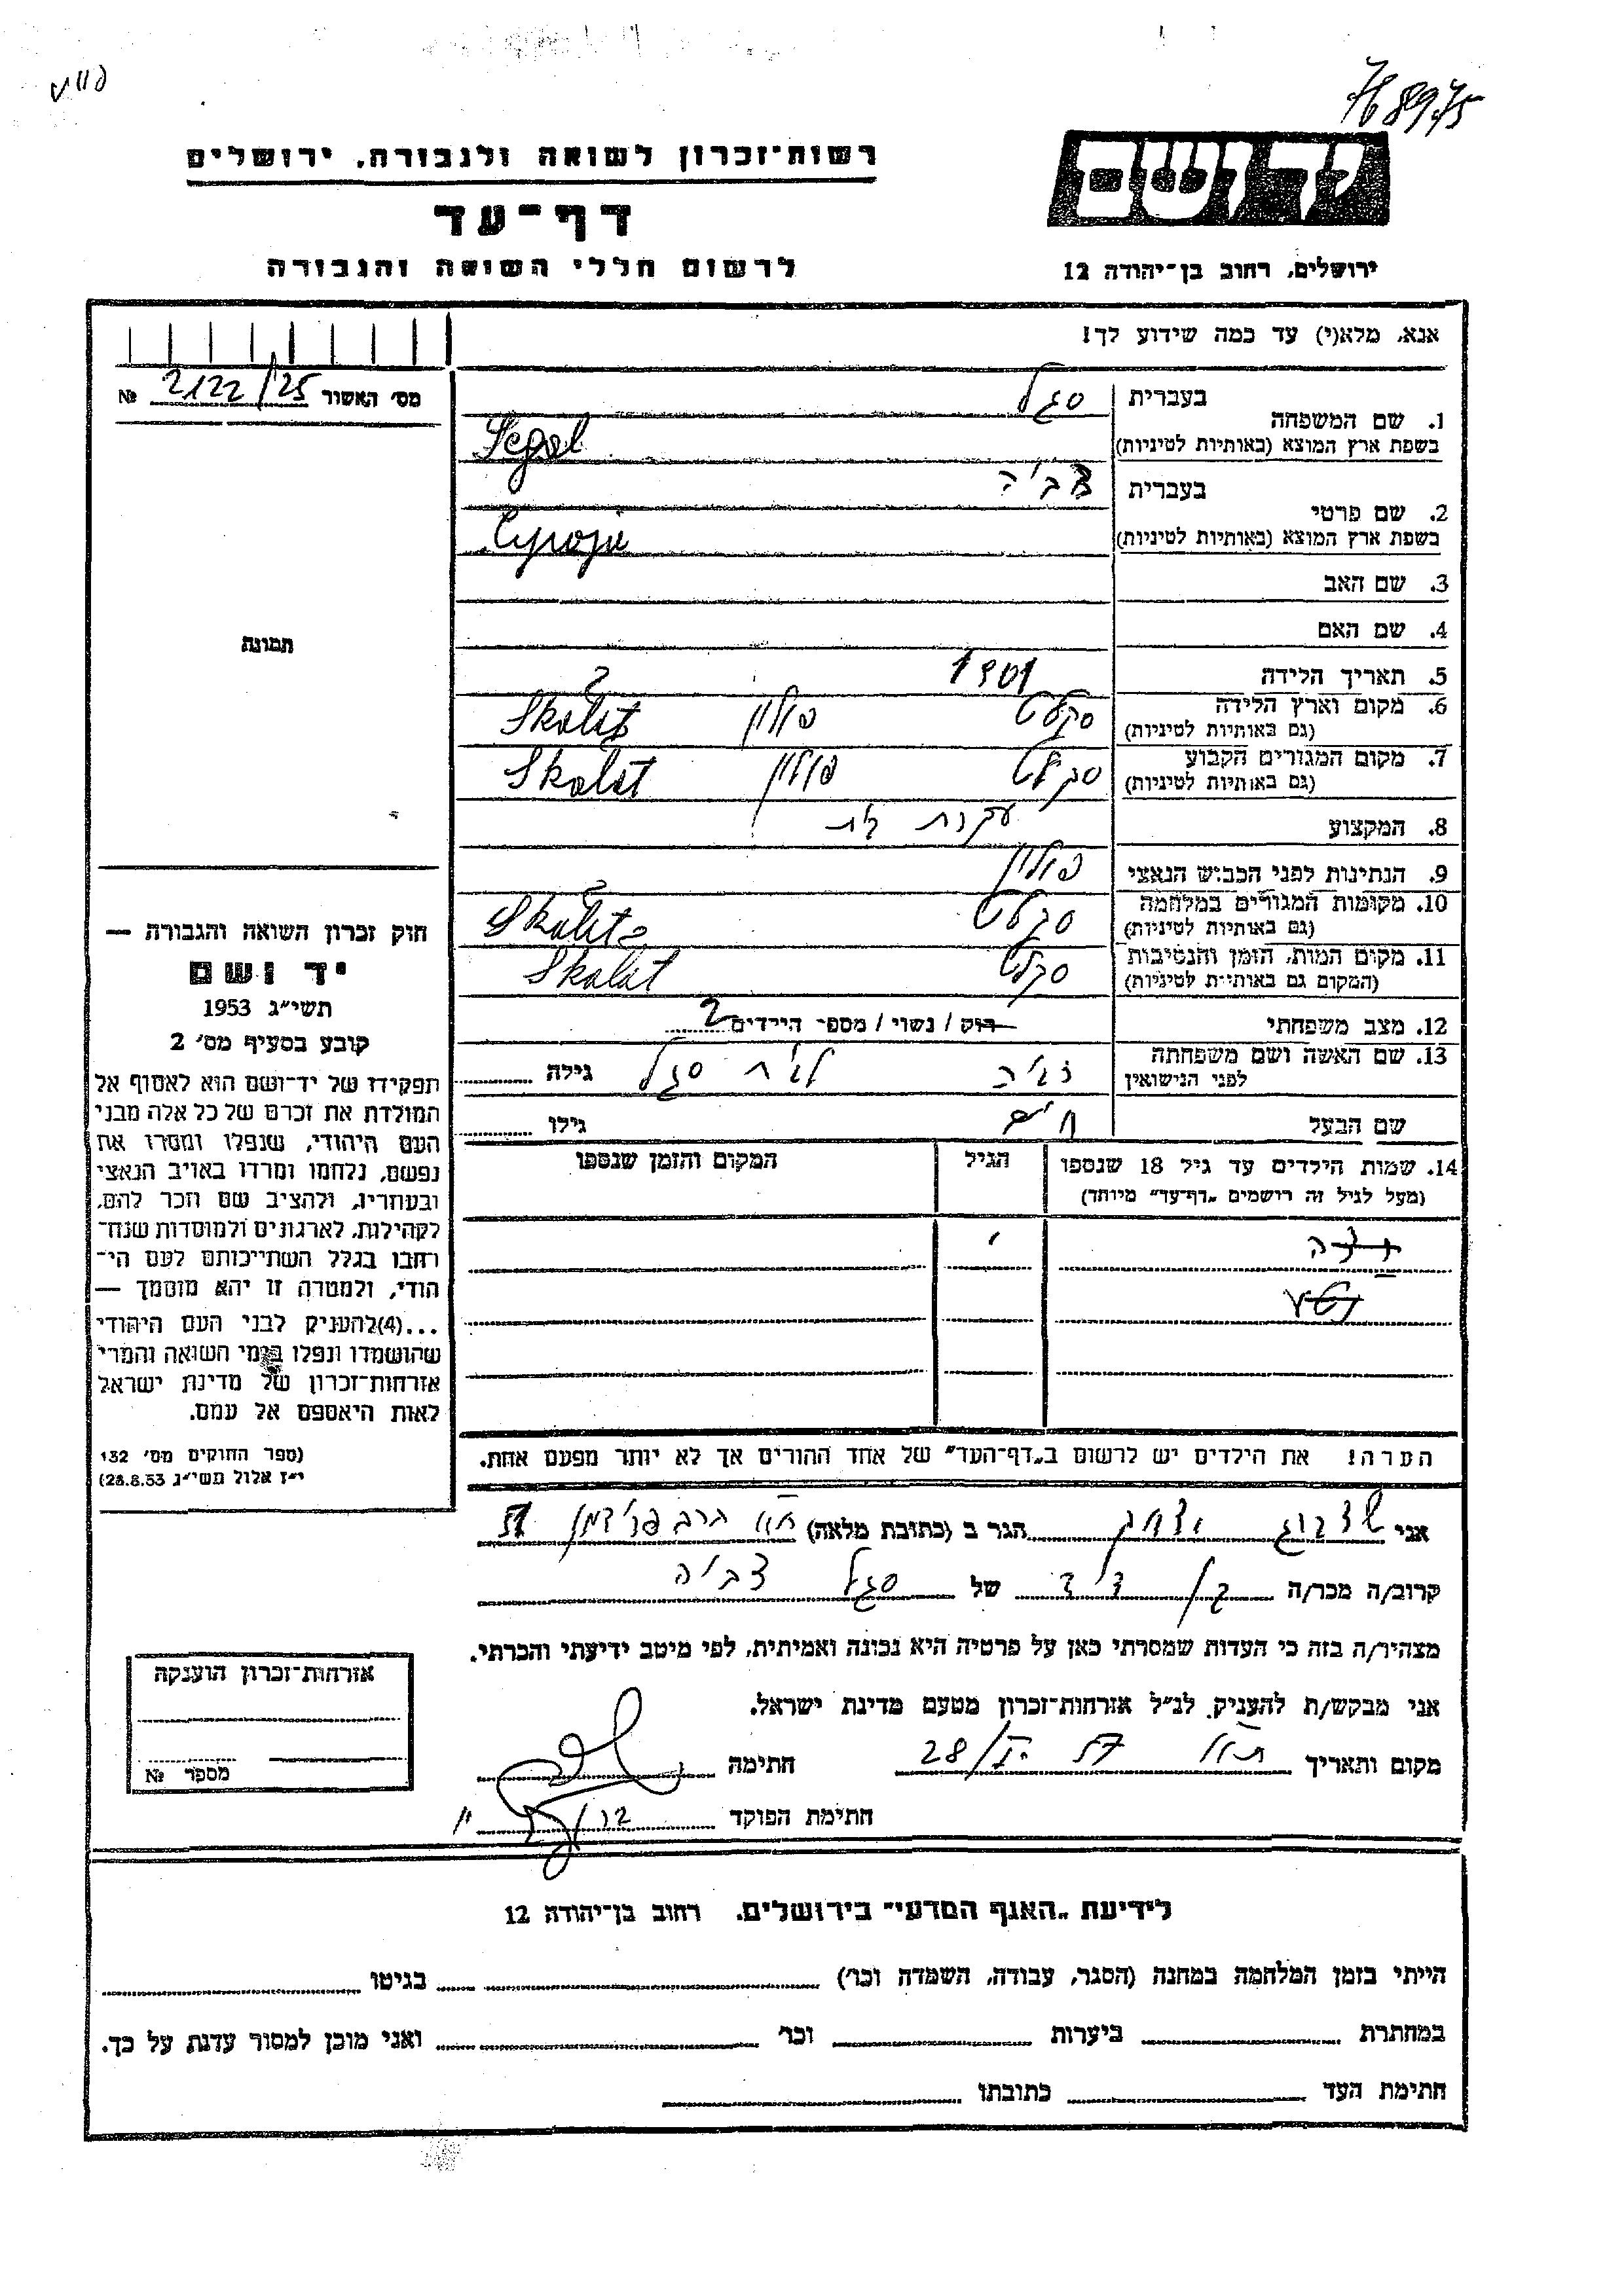 768975
יד ושם
רשות־זכרון לשואה ולגבורה, ירושלים
דף־עד
לרשום חללי השואה והגבורה
ירושלים, רחוב בן־יהודה 12
אנא, מלא(י) עד כמה שידוע לך!
מס׳ האשור 2122/25 №
1. שם המשפחה
בעברית סגל
בשפת ארץ המוצא (באותיות לטיניות) Segal
2. שם פרטי
בעברית צביה
בשפת ארץ המוצא (באותיות לטיניות)
3. שם האב
4. שם האם
תמונה
5. תאריך הלידה 1901
6. מקום וארץ הלידה סקלט פולין
(גם באותיות לטיניות)
7. מקום המגורים הקבוע סקלט פולין Skalat
(גם באותיות לטיניות)
8. המקצוע עקרת בית
9. הנתינות לפני הכבוש הנאצי פולין
10. מקומות המגורים במלחמה סקלט
(גם באותיות לטיניות)
11. מקום המות, הזמן והנסיבות סקלט Skalat
(המקום גם באותיות לטיניות)
12. מצב משפחתי רוק / נשוי / מספר הילדים 2
13. שם האשה ושם משפחתה צביה לבית סגל גילה
לפני הנישואין
שם הבעל חיים גילו
14. שמות הילדים עד גיל 18 שנספו הגיל המקום והזמן שנספו
(מעל לגיל זה רושמים „דף־עד” מיוחד)
הערה! את הילדים יש לרשום ב„דף־העד” של אחד ההורים אך לא יותר מפעם אחת.
חוק זכרון השואה והגבורה —
יד ושם
תשי״ג 1953
קובע בסעיף מס׳ 2
תפקידו של יד־ושם הוא לאסוף אל
המולדת את זכרם של כל אלה מבני
העם היהודי, שנפלו ומסרו את
נפשם, נלחמו ומרדו באויב הנאצי
ובעוזריו, ולהציב שם וזכר להם,
לקהילות, לארגונים ולמוסדות שנח־
רבו בגלל השתייכותם לעם הי־
הודי, ולמטרה זו יהא מוסמך —
...(4)להעניק לבני העם היהודי
שהושמדו ונפלו בימי השואה והמרי
אזרחות־זכרון של מדינת ישראל
לאות היאספם אל עמם.
(ספר החוקים מס׳ 132
י״ז אלול תשי״ג 28.8.53)
אני יצחק הגר ב (כתובת מלאה)
קרוב/ה מכר/ה בן דוד של סגל צביה
מצהיר/ה בזה כי העדות שמסרתי כאן על פרטיה היא נכונה ואמיתית, לפי מיטב ידיעתי והכרתי.
אני מבקש/ת להעניק לנ״ל אזרחות־זכרון מטעם מדינת ישראל.
מקום ותאריך חתימה
חתימת הפוקד
אזרחות־זכרון הוענקה
מספר №
לידיעת „האגף המדעי” בירושלים, רחוב בן־יהודה 12
הייתי בזמן המלחמה במחנה (הסגר, עבודה, השמדה וכו׳) בגיטו
במחתרת ביערות וכו׳ ואני מוכן למסור עדות על כך.
חתימת העד כתובתו